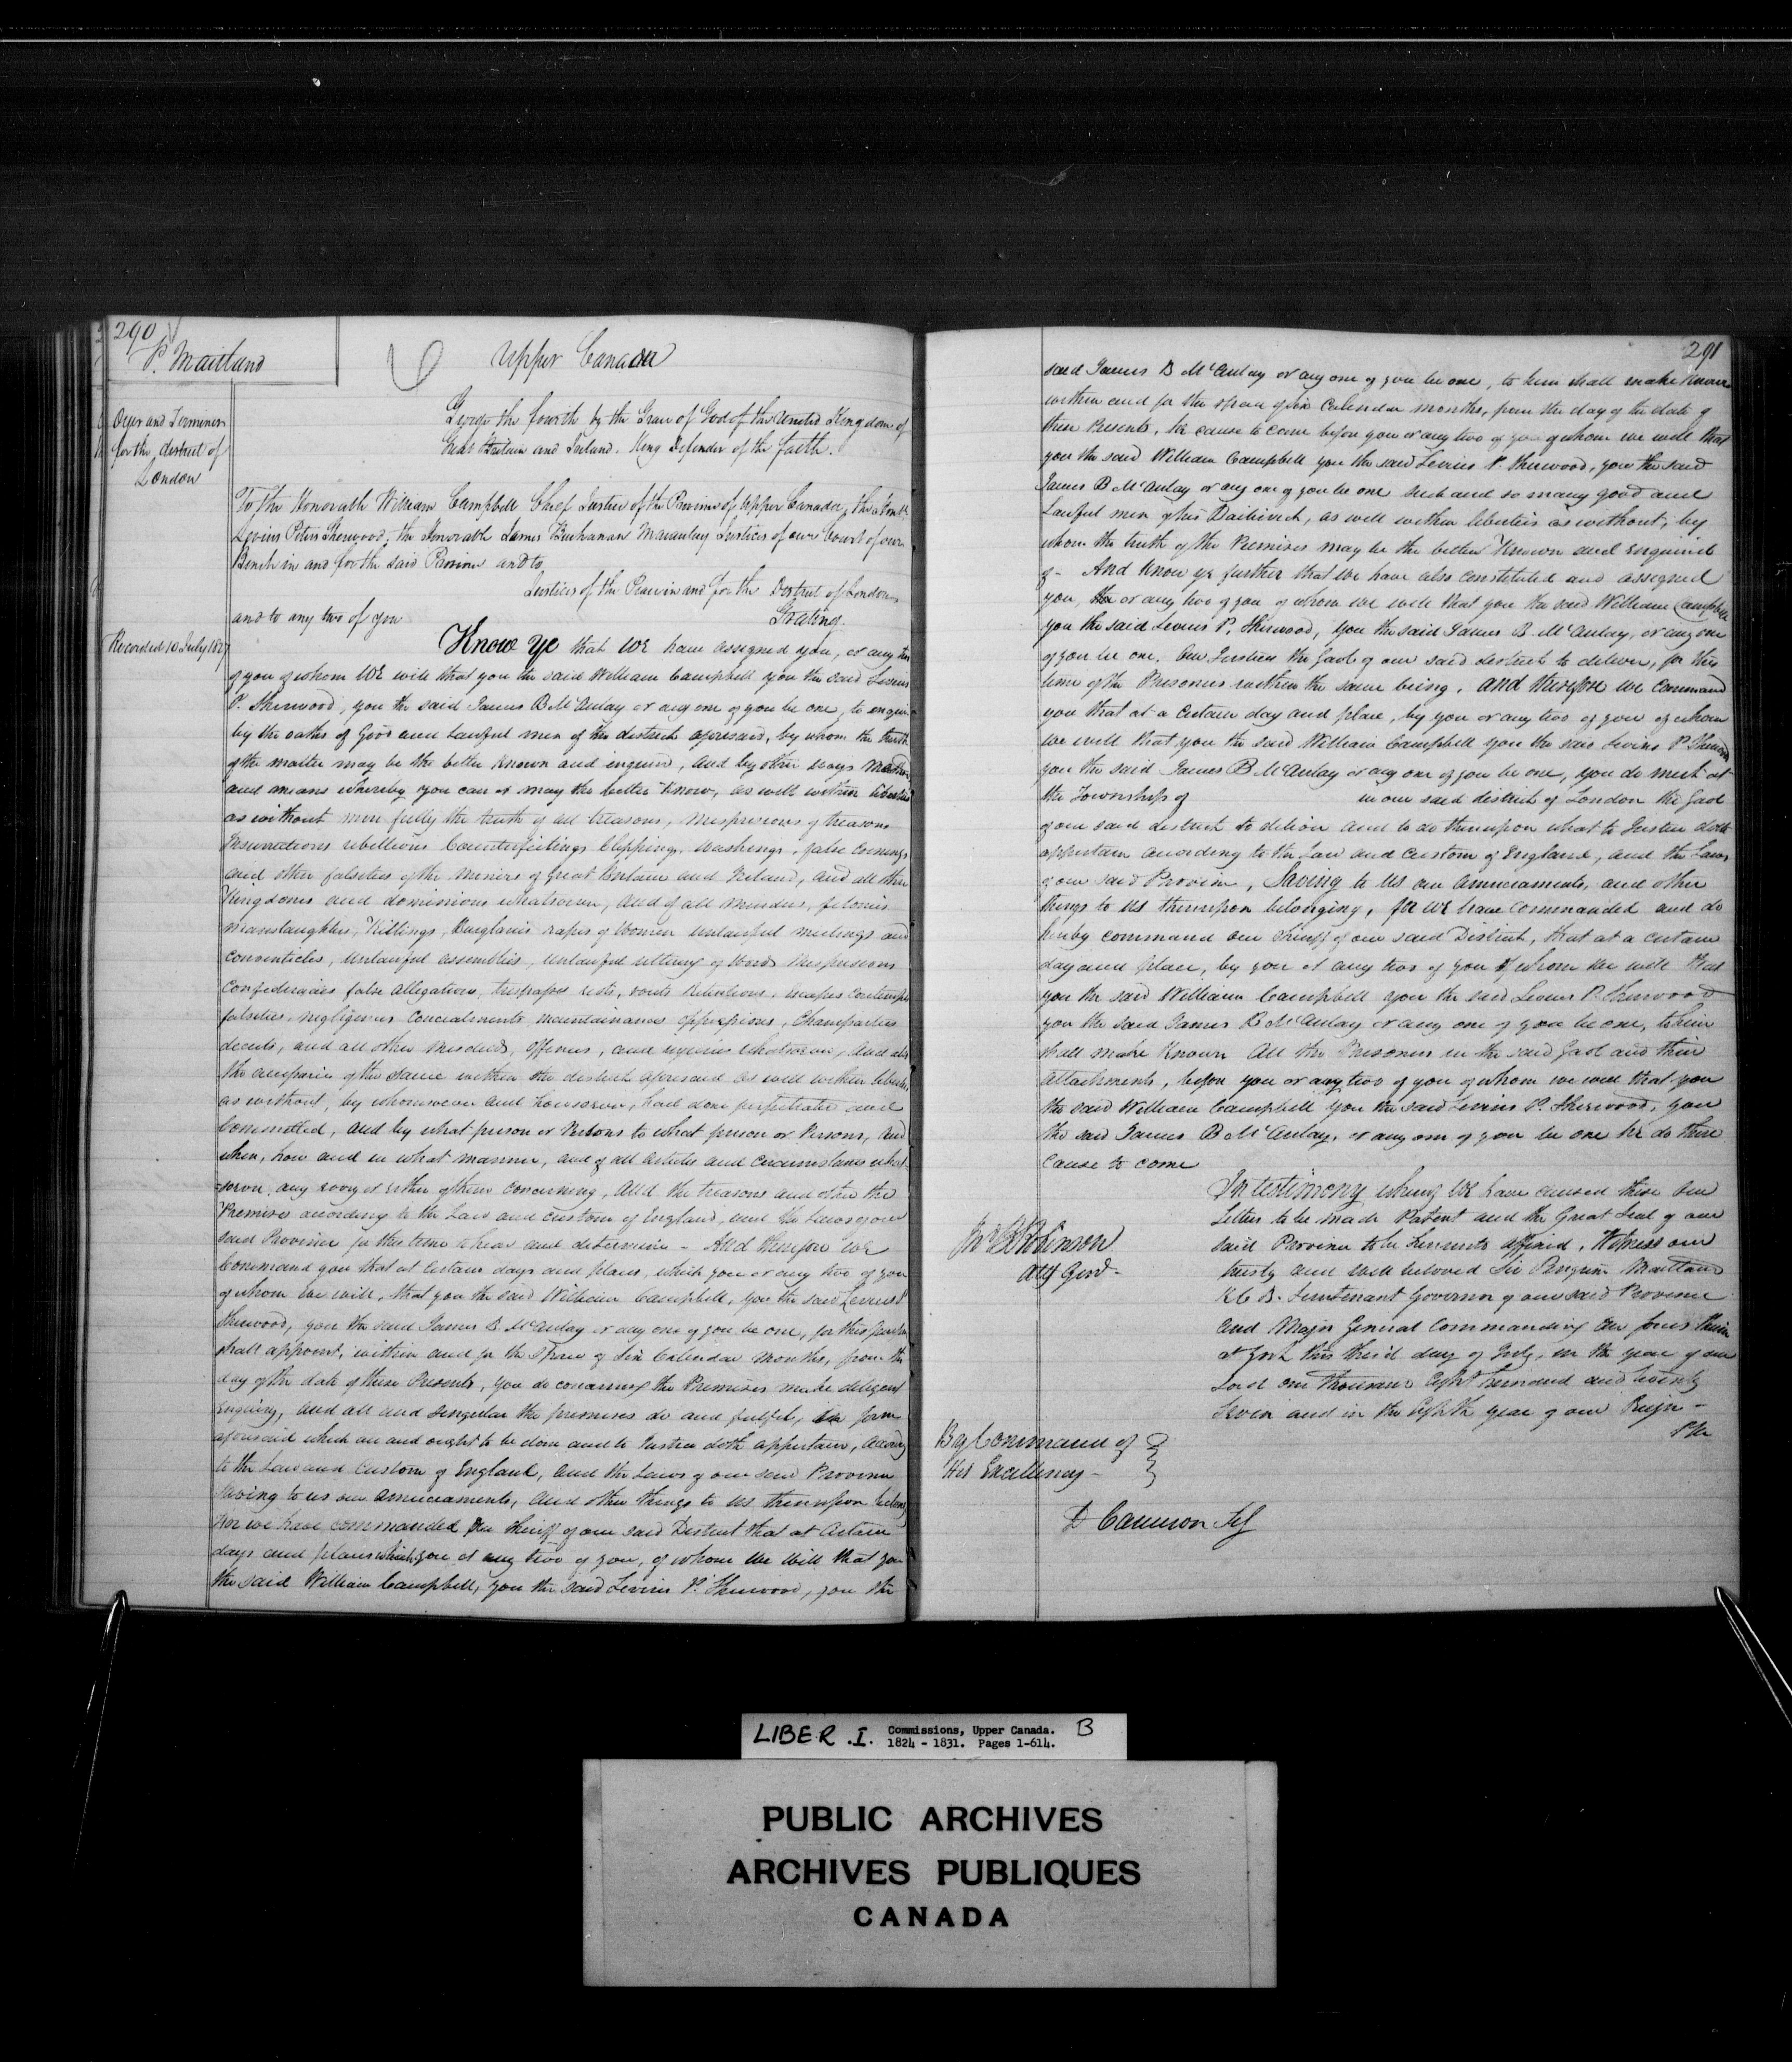 290
P. Maitland
Upper Canada
Oyer and Terminer
for the district of
London
George the fourth by the Grace of God of the United Kingdom of
Great Britain and Ireland. King Defender of the faith.
To the Honorable William Campbell Chief Justice of the Province of Upper Canada, the Honble
Levius Peters Sherwood, the Honorable James Buchanan Macaulay Justices of our Court of our
Bench in and for the said Province and to
Justices of the Peace in and for the District of London,
and to any two of you Greeting.
Recorded 10 July 1827
Know Ye that We have assigned you, or any two
of you of whom We will that you the said William Campbell you the said Levius
P. Sherwood, you the said James B McAulay or any one of you be one, to enquire
by the oaths of Good and Lawful men of the district aforesaid, by whom the truth
of the matter may be the better known and inquired, and by other ways methods
and means whereby you can or may the better know, as well within liberties
as without more fully the truth of all treasons, misprisions of treasons
Insurrections rebellions Counterfeitings Clippings, washings, false Coinings
and other falsities of the monies of Great Britain and Ireland, and all other
Kingdoms and dominions whatsoever, and of all Murders, felonies
Manslaughters, Killings, Burglaries rapes of Women unlawful meetings and
Conventicles, unlawful assemblies, unlawful uttering of Words Misprisions
Confederacies false allegations, trespasses riots, routs Retentions, escapes Contempts
falsities, negligences Concealments Maintainances oppressions, Champarties
deceits, and all other Misdeeds, offences, and injuries whatsoever, And also
the accessaries of the same within the district aforesaid as well within liberties
as without, by whomsoever and howsoever, had done perpetrated and
Committed, and by what person or Persons to what person or Persons, and
when, how and in what manner, and of all articles and circumstances what
soever, any every or either of them concerning, And the treasons and other the
Premises according to the Law and custom of England, and the Laws of our
said Province for this time to hear and determine - And therefore We
Command you that at Certain days and places, which you or any two of you
of whom We will, that you the said William Campbell, you the said Levius P
Sherwood, you the said James B McAulay or any one of you be one, for this purpose
shall appoint, within and for the Space of Six Calendar Months, from the
day of the date of these Presents, you do concerning the Premises make diligent
Enquiry, and all and singular the premises do and fulfil, in form
aforesaid which are and ought to be done and to Justice doth appertain, according
to the Law and Custom of England, and the Laws of our said Province
saving to us our amerciaments, and other things to us thereupon belong
For we have commanded Our Sheriff of our said District that at Certain
days and places which you or any two of you, of whom We Will that you
the said William Campbell, you the said Levius P. Sherwood, you the
291
said James B McAulay or any one of you be one, to him shall make known
within and for the space of six Calendar months, from the day of the date of
these Presents, he cause to come before you or any two of you of whom we will that
you the said William Campbell you the said Levius P. Sherwood, you the said
James B McAulay or any one of you be one such and so many good and
Lawful men of his Bailiwick, as well within liberties as without, by
whom the truth of the Premises may be the better Known and enquired
of - And know ye further that We have also Constituted and assigned
you, or any two of you of whom we will that you the said William Campbell
you the said Levius P. Sherwood, you the said James B. McAulay, or any one
of you be one, Our Justices the Gaol of our said district to deliver, for this
time of the Prisoners within the same being, and therefore we Command
you that at a Certain day and place, by you or any two of you of whom
We will that you the said William Campbell you the said Levius P Sherwood
you the said James B McAulay or any one of you be one, you do meet at
the Township of in our said district of London the Gaol
of our said district to deliver and to do thereupon what to Justice doth
appertain according to the Law and Custom of England, and the Laws
of our said Province, Saving to Us our amerciaments, and other
things to Us thereupon belonging, for We have Commanded and do
hereby command our Sheriff of our said District, that at a certain
day and place, by you or any two of you of whom we will that
you the said William Campbell you the said Levius P. Sherwood
you the said James B McAulay or any one of you be one, to him
shall make Known All the Prisoners in the said Gaol and their
attachments, before you or any two of you of whom we will that you
the said William Campbell you the said Levius P. Sherwood, you
the said James B McAulay, or any one of you be one he do there
Cause to come
In testimony whereof We have caused these our
Letters to be made Patent and the Great Seal of our
said Province to be hereunto affixed, Witness our
trusty and well beloved Sir Peregrine Maitland
K.C.B. Lieutenant Governor of our said Province
and Major General Commanding our forces therein
at York this third day of July, in the year of our
Lord one thousand Eight hundred and twenty
Seven and in the Eighth year of our Reign -
P M
Jno B Robinson
Atty Genl -
By Command of
His Excellency -
D Cameron Secy
LIBER .I. Commissions, Upper Canada. B
1824 - 1831. Pages 1-614.
PUBLIC ARCHIVES
ARCHIVES PUBLIQUES
CANADA